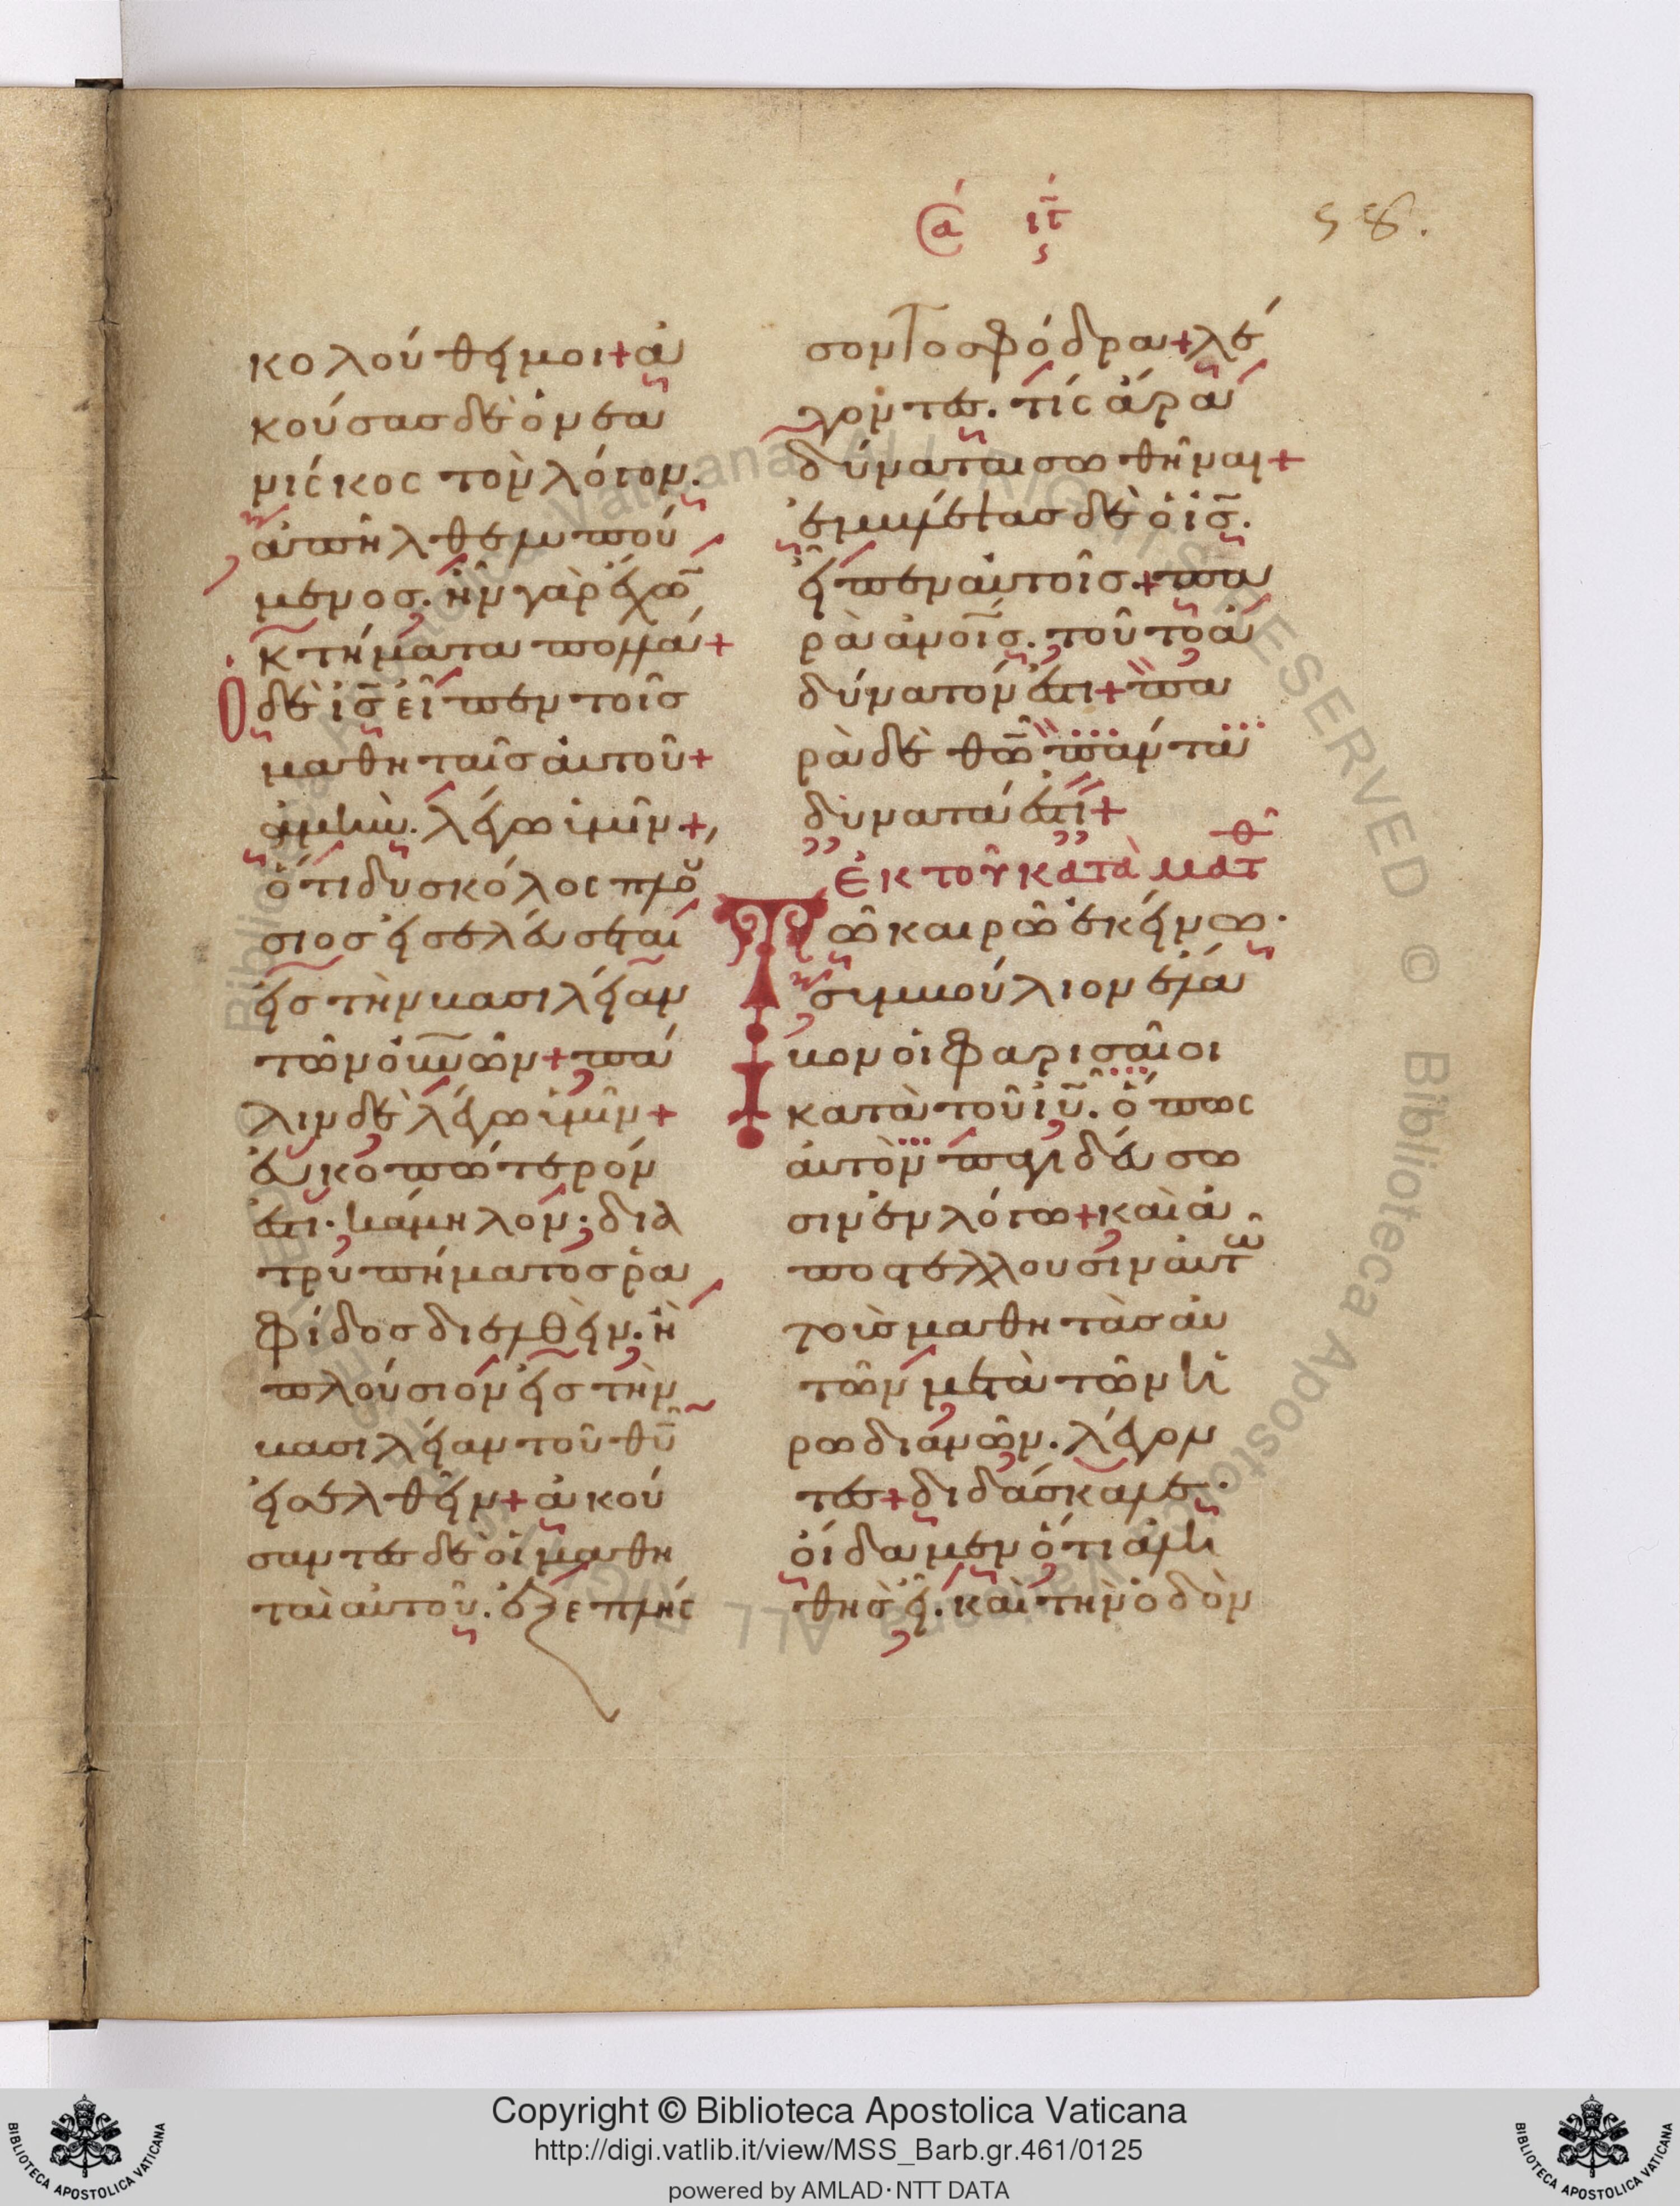 α ιτ ϛ
58.
κολούθει μοι + ἀ
κούσας δὲ ὁ νεα
νίσκος τὸν λόγον.
ἀπῆλθεν λυπού
μενος. ἦν γὰρ ἔχω̅
κτήματα πολλά +
Ὁ δὲ ἰς̅ εἶπεν τοῖς
μαθηταῖς αὐτοῦ +
ἀμὴν. λέγω ὑμῖν +
ὅτι δυσκόλος πλο
ύσιος εἰσελεύσεται
εἰς τὴν βασιλείαν
τῶν οὐν̅ῶν + πά
λιν δὲ λέγω ὑμῖν +
εὐκοπώτερόν
ἐστι. κάμηλον; διὰ
τρυπήματος ρα
φίδος διελθεῖν. ἢ
πλούσιον εἰς τὴν
βασιλείαν τοῦ θυ̅
εἰσελθεῖν + ἀκού
σαντες δὲ οἱ μαθη
ταὶ αὐτοῦ. ἐξεπλήσ
σοντο σφόδρα + λέ
γοντες. τίς ἄρα
δύναται σωθῆναι +
ἐμβλέψας δὲ ὁ ἰς̅.
εἶπεν αὐτοῖς. + πα
ρὰ ἀνοις̅. τοῦτο ἀ
δύνατόν ἐστι + πα
ρὰ δὲ θω̅ πάντα
δυνατά ἐστι +
Ἐκ τοῦ κατὰ Ματθ
Τῶ καιρῶ ἐκείνω.
συμβούλιον ἔλα
βον οἱ φαρισαῖοι
κατὰ τοῦ ἰυ̅. ὅπως
αὐτὸν παγιδεύσω
σιν ἐν λόγω + καὶ ἀ
ποστέλλουσιν αὐτῶ
τοὺς μαθητὰς αὐ
τῶν μετὰ τῶν ἡ
ρωδιανῶν. λέγον
τες + διδάσκαλε.
οἴδαμεν ὅτι ἀλη
θὴς εἶ. καὶ τὴν ὁδὸν
Copyright © Biblioteca Apostolica Vaticana
http://digi.vatlib.it/view/MSS_Barb.gr.461/0125
powered by AMLAD·NTT DATA
BIBLIOTECA APOSTOLICA VATICANA
BIBLIOTECA APOSTOLICA VATICANA